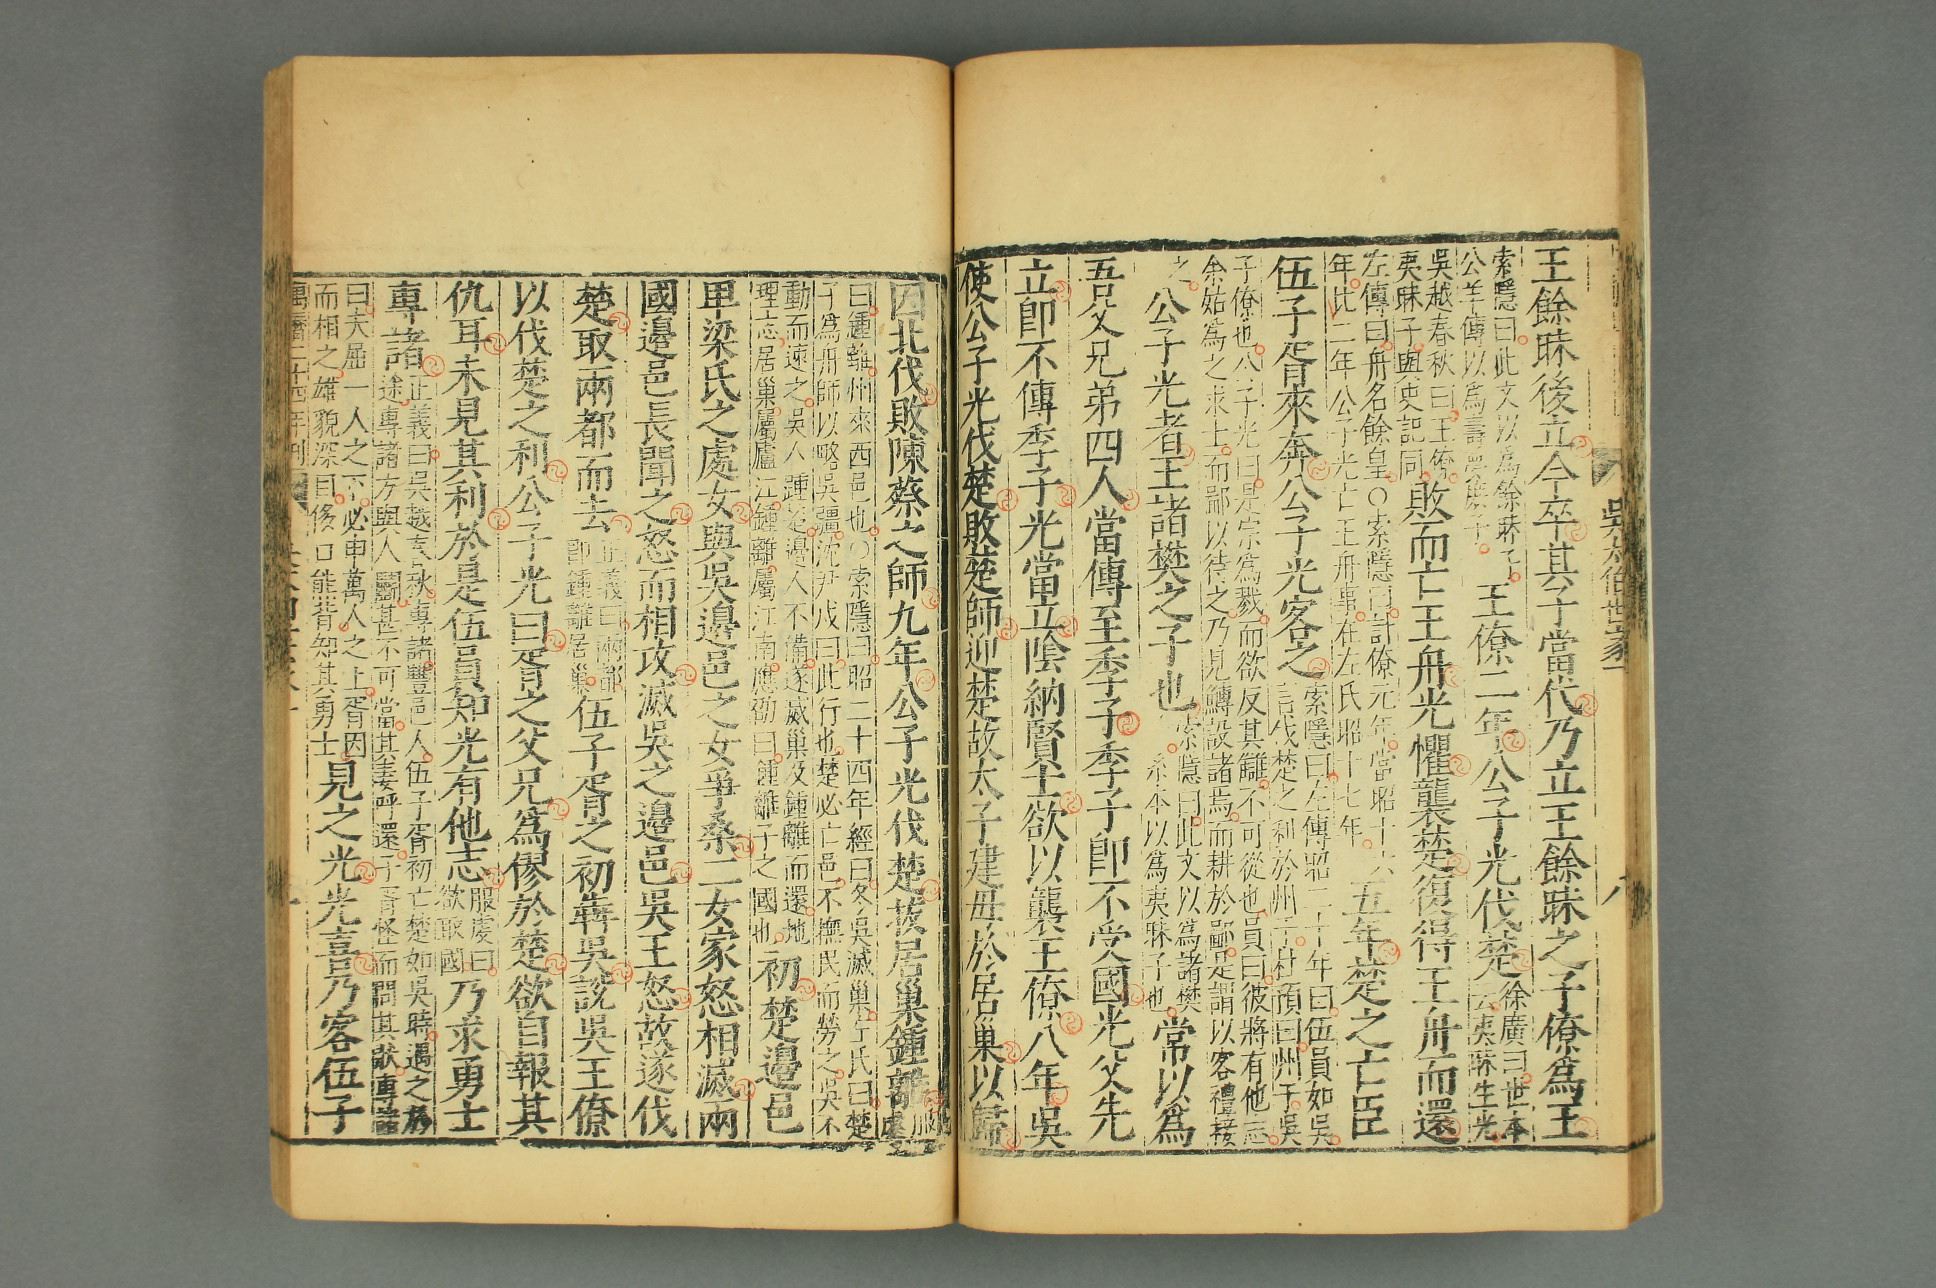 王餘眛後立今卒其子當代乃立王餘眛之子僚爲王
索隱曰此文以爲餘眛子
公羊傳以爲壽夢庶子
王僚二年公子光伐楚
徐廣曰世本
云夷眛生光
吳越春秋曰王僚
夷眛子與史記同
敗而亡王舟光懼襲楚復得王舟而還
左傳曰舟名餘皇○索隱曰計僚元年當昭十六
年比二年公子光亡王舟事在左氏昭十七年
五年楚之亡臣
伍子胥來奔公子光客之
索隱曰左傳昭二十年曰伍員如吳
言伐楚之利於州于杜預曰州于吳
子僚也公子光曰是宗爲戮而欲反其讎不可從也員曰彼將有他志
余姑爲之求士而鄙以待之乃見鱄設諸焉而耕於鄙是謂以客禮接
之
公子光者王諸樊之子也
索隱曰此文以爲諸樊
系本以爲夷眛子也
常以爲
吾父兄弟四人當傳至季子季子即不受國光父先
立即不傳季子光當立陰納賢士欲以襲王僚八年吳
使公子光伐楚敗楚師迎楚故太子建母於居巢以歸
吳太伯世家一
八
因北伐敗陳蔡之師九年公子光伐楚拔居巢鍾離
服虔
曰鍾離州來西邑也○索隱曰昭二十四年經曰冬吳滅巢左氏曰楚
子爲舟師以略吳疆沈尹戌曰此行也楚必亡邑不撫民而勞之吳不
動而速之吳人踵楚邊人不備遂滅巢及鍾離而還地
理志居巢屬廬江鍾離屬江南應劭曰鍾離子之國也
初楚邊邑
卑梁氏之處女與吳邊邑之女爭桑二女家怒相滅兩
國邊邑長聞之怒而相攻滅吳之邊邑吳王怒故遂伐
楚取兩都而去
正義曰兩都
即鍾離居巢
伍子胥之初犇吳說吳王僚
以伐楚之利公子光曰胥之父兄爲僇於楚欲自報其
仇耳未見其利於是伍員知光有他志
服虔曰
欲取國
乃求勇士
專諸
正義曰吳越春秋專諸豐邑人伍子胥初亡楚如吳時遇之於
途專諸方與人鬭甚不可當其妻呼還子胥怪而問其狀專諸
曰夫屈一人之下必申萬人之上胥因
而相之雄貌深目侈口能背知其勇士
見之光光喜乃客伍子
萬曆二十四年刊